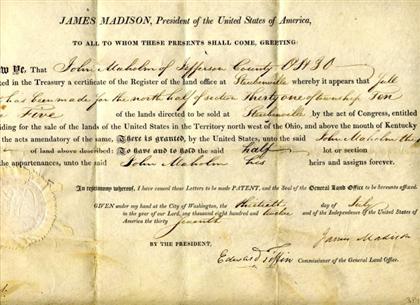 JAMES MADISON, President of the United States of America,
TO ALL TO WHOM THESE PRESENTS SHALL COME, GREETING:
Ye, That John Maholm of Jefferson County OHIO
ted in the Treasury a certificate of the Register of the land office at Steubenville whereby it appears that full
has been made for the north half of section thirty one of township Ten
Five of the lands directed to be sold at Steubenville by the act of Congress, entitled
iding for the sale of the lands of the United States in the Territory north west of the Ohio, and above the mouth of Kentucky
the acts amendatory of the same, There is granted, by the United States, unto the said John Maholm the
of land above described: To have and to hold the said half lot or section
the appurtenances, unto the said John Maholm his heirs and assigns forever.
In testimony whereof, I have caused these Letters to be made PATENT, and the Seal of the General Land Office to be hereunto affixed.
GIVEN under my hand at the City of Washington, the thirtieth day of July
in the year of our Lord, one thousand eight hundred and twelve and of the Independence of the United States
of America the thirty seventh
BY THE PRESIDENT,
James Madison
Edward Tiffin Commissioner of the General Land Office.